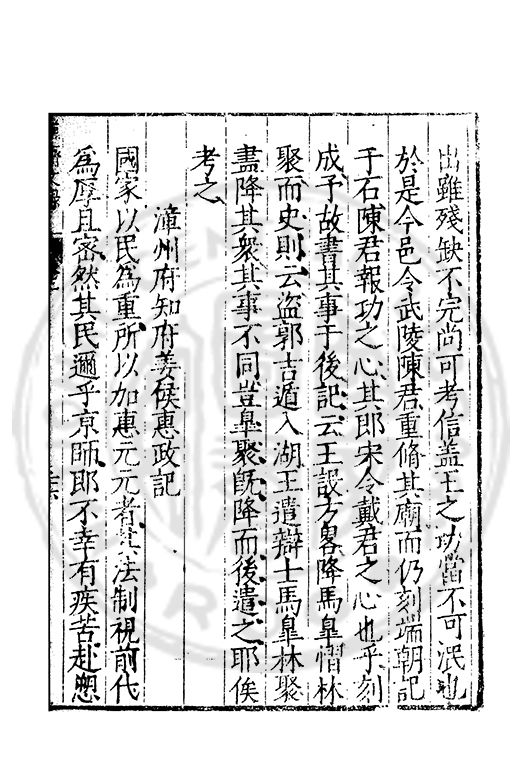 出雖殘缺不完尚可考信盖王之功當不可泯也
於是今邑令武陵陳君重脩其廟而仍刻端朝記
于石陳君報功之心其即宋令戴君之心也乎刻
成予故書其事于後記云王設方畧降馬臯慴林
聚而史則云盗郭吉遁入湖王遣辯士馬臯林聚
盡降其衆其事不同豈臯聚旣降而後遣之耶俟
考之
漳州府知府姜侯惠政記
國家以民為重所以加惠元元者其法制視前代
為厚且密然其民邇乎京師即不幸有疾苦赴愬